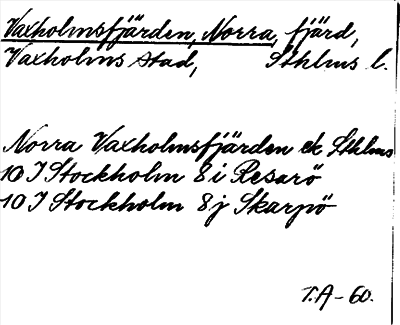 Vaxholmsfjärden, Norra, fjärd,
Vaxholms stad, Sthlms l.
Norra Vaxholmsfjärden ek Sthlms
10 I Stockholm 8 i Resarö
10 I Stockholm 8 j Skarpö
T.A-60.